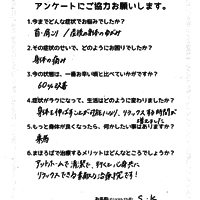 アンケートにご協力お願いします。
1.今までどんな症状でお悩みでしたか?
首・肩こり / 左腰の
2.その症状のせいで、どのようにお困りでしたか?
身体の痛み
3.今の状態は、一番お辛い頃と比べていかがですか?
60%改善
4.症状がラクになって、生活はどのように変わりましたか?
身体を伸ばすことが可能になり、リラックスする時間が
増えました
5.もっと身体が良くなったら、何かしたい事はありますか?
乗馬
6.まほろばで治療するメリットはどんなところでしょうか?
アットホームで清潔で、行くと心身共に
リラックスできる素敵な治療院です!
S.K